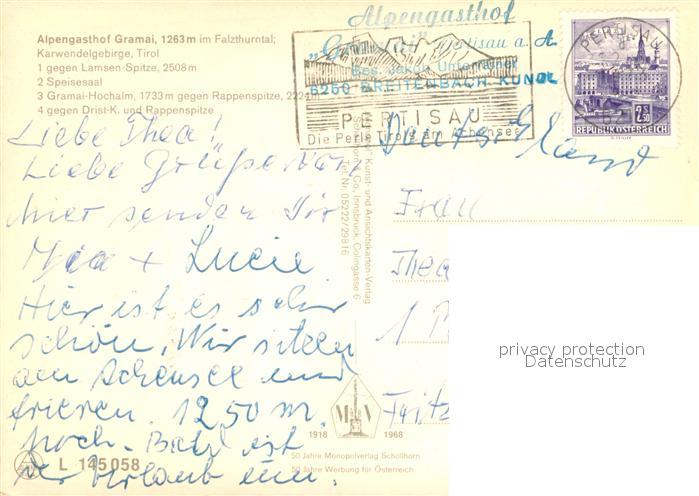 Alpengasthof Gramai, 1263 m im Falzthurntal;
Karwendelgebirge, Tirol
1 gegen Lamsen-Spitze, 2508 m
2 Speisesaal
3 Gramai-Hochalm, 1733 m gegen Rappenspitze, 2224 m
4 gegen Drist-K. und Rappenspitze
Alpengasthof
Pertisau a. A.
Bes. Unterrainer
6250 BREITENBACH-KUNDL
PERTISAU
Die Perle Tirols am Achensee
PERTISAU
2.50
REPUBLIK ÖSTERREICH
Liebe Thea!
Liebe Grüße von
hier senden Dir
+ Lucie
Hier ist es sehr
schön. Wir sitzen
am Achensee und
frieren. 1250 m
hoch. Bald ist
der Urlaub um.
Deutschland
Frau
Thea
1
Fritz
Kunst- und Ansichtskarten-Verlag
& Co., Innsbruck, Colingasse 6
Tel. Nr. 05222/29816
privacy protection
Datenschutz
1918 1968
50 Jahre Monopolverlag Schöllhorn
50 Jahre Werbung für Österreich
L 145058